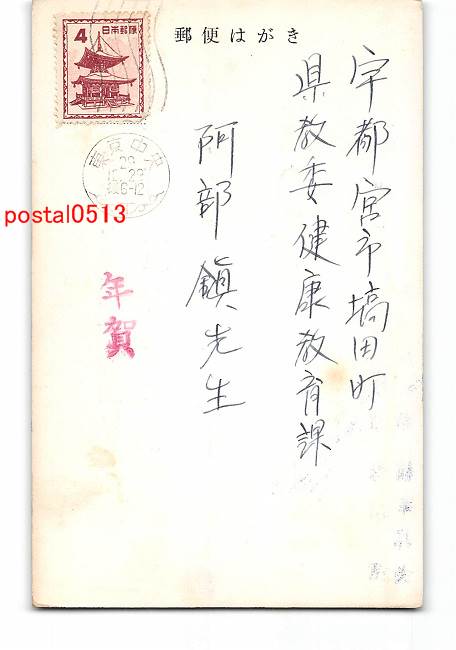 郵便はがき
4 日本郵便
宇都宮市塙田町
県教委健康教育課
阿部鎮先生
年賀
東京中央
29
12.29
6-12
postal0513